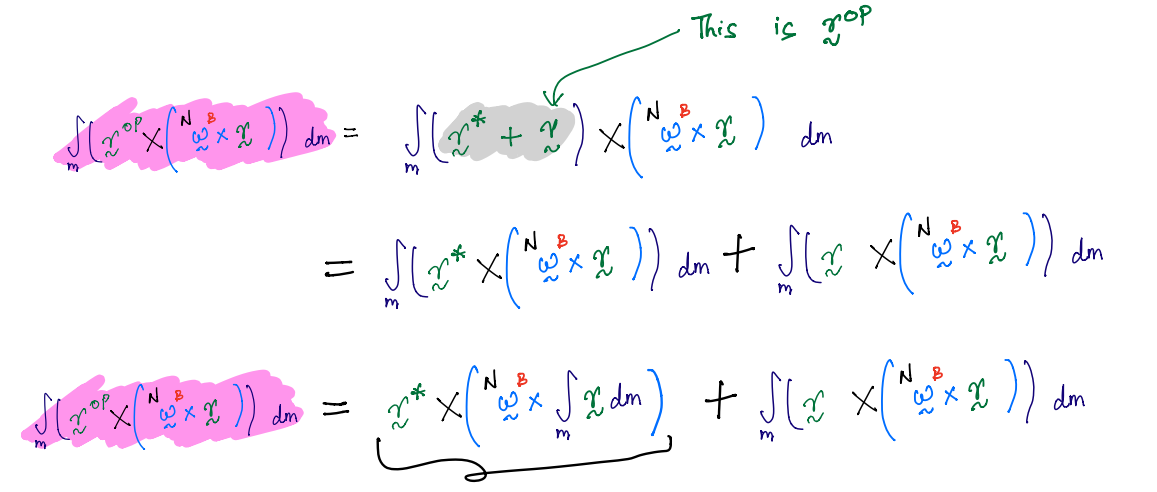 This is r^OP
∫_m (r^OP × (^N ω^B × r)) dm = ∫_m (r^* + r) × (^N ω^B × r) dm
= ∫_m (r^* × (^N ω^B × r)) dm + ∫_m (r × (^N ω^B × r)) dm
∫_m (r^OP × (^N ω^B × r)) dm = r^* × (^N ω^B × ∫_m r dm) + ∫_m (r × (^N ω^B × r)) dm